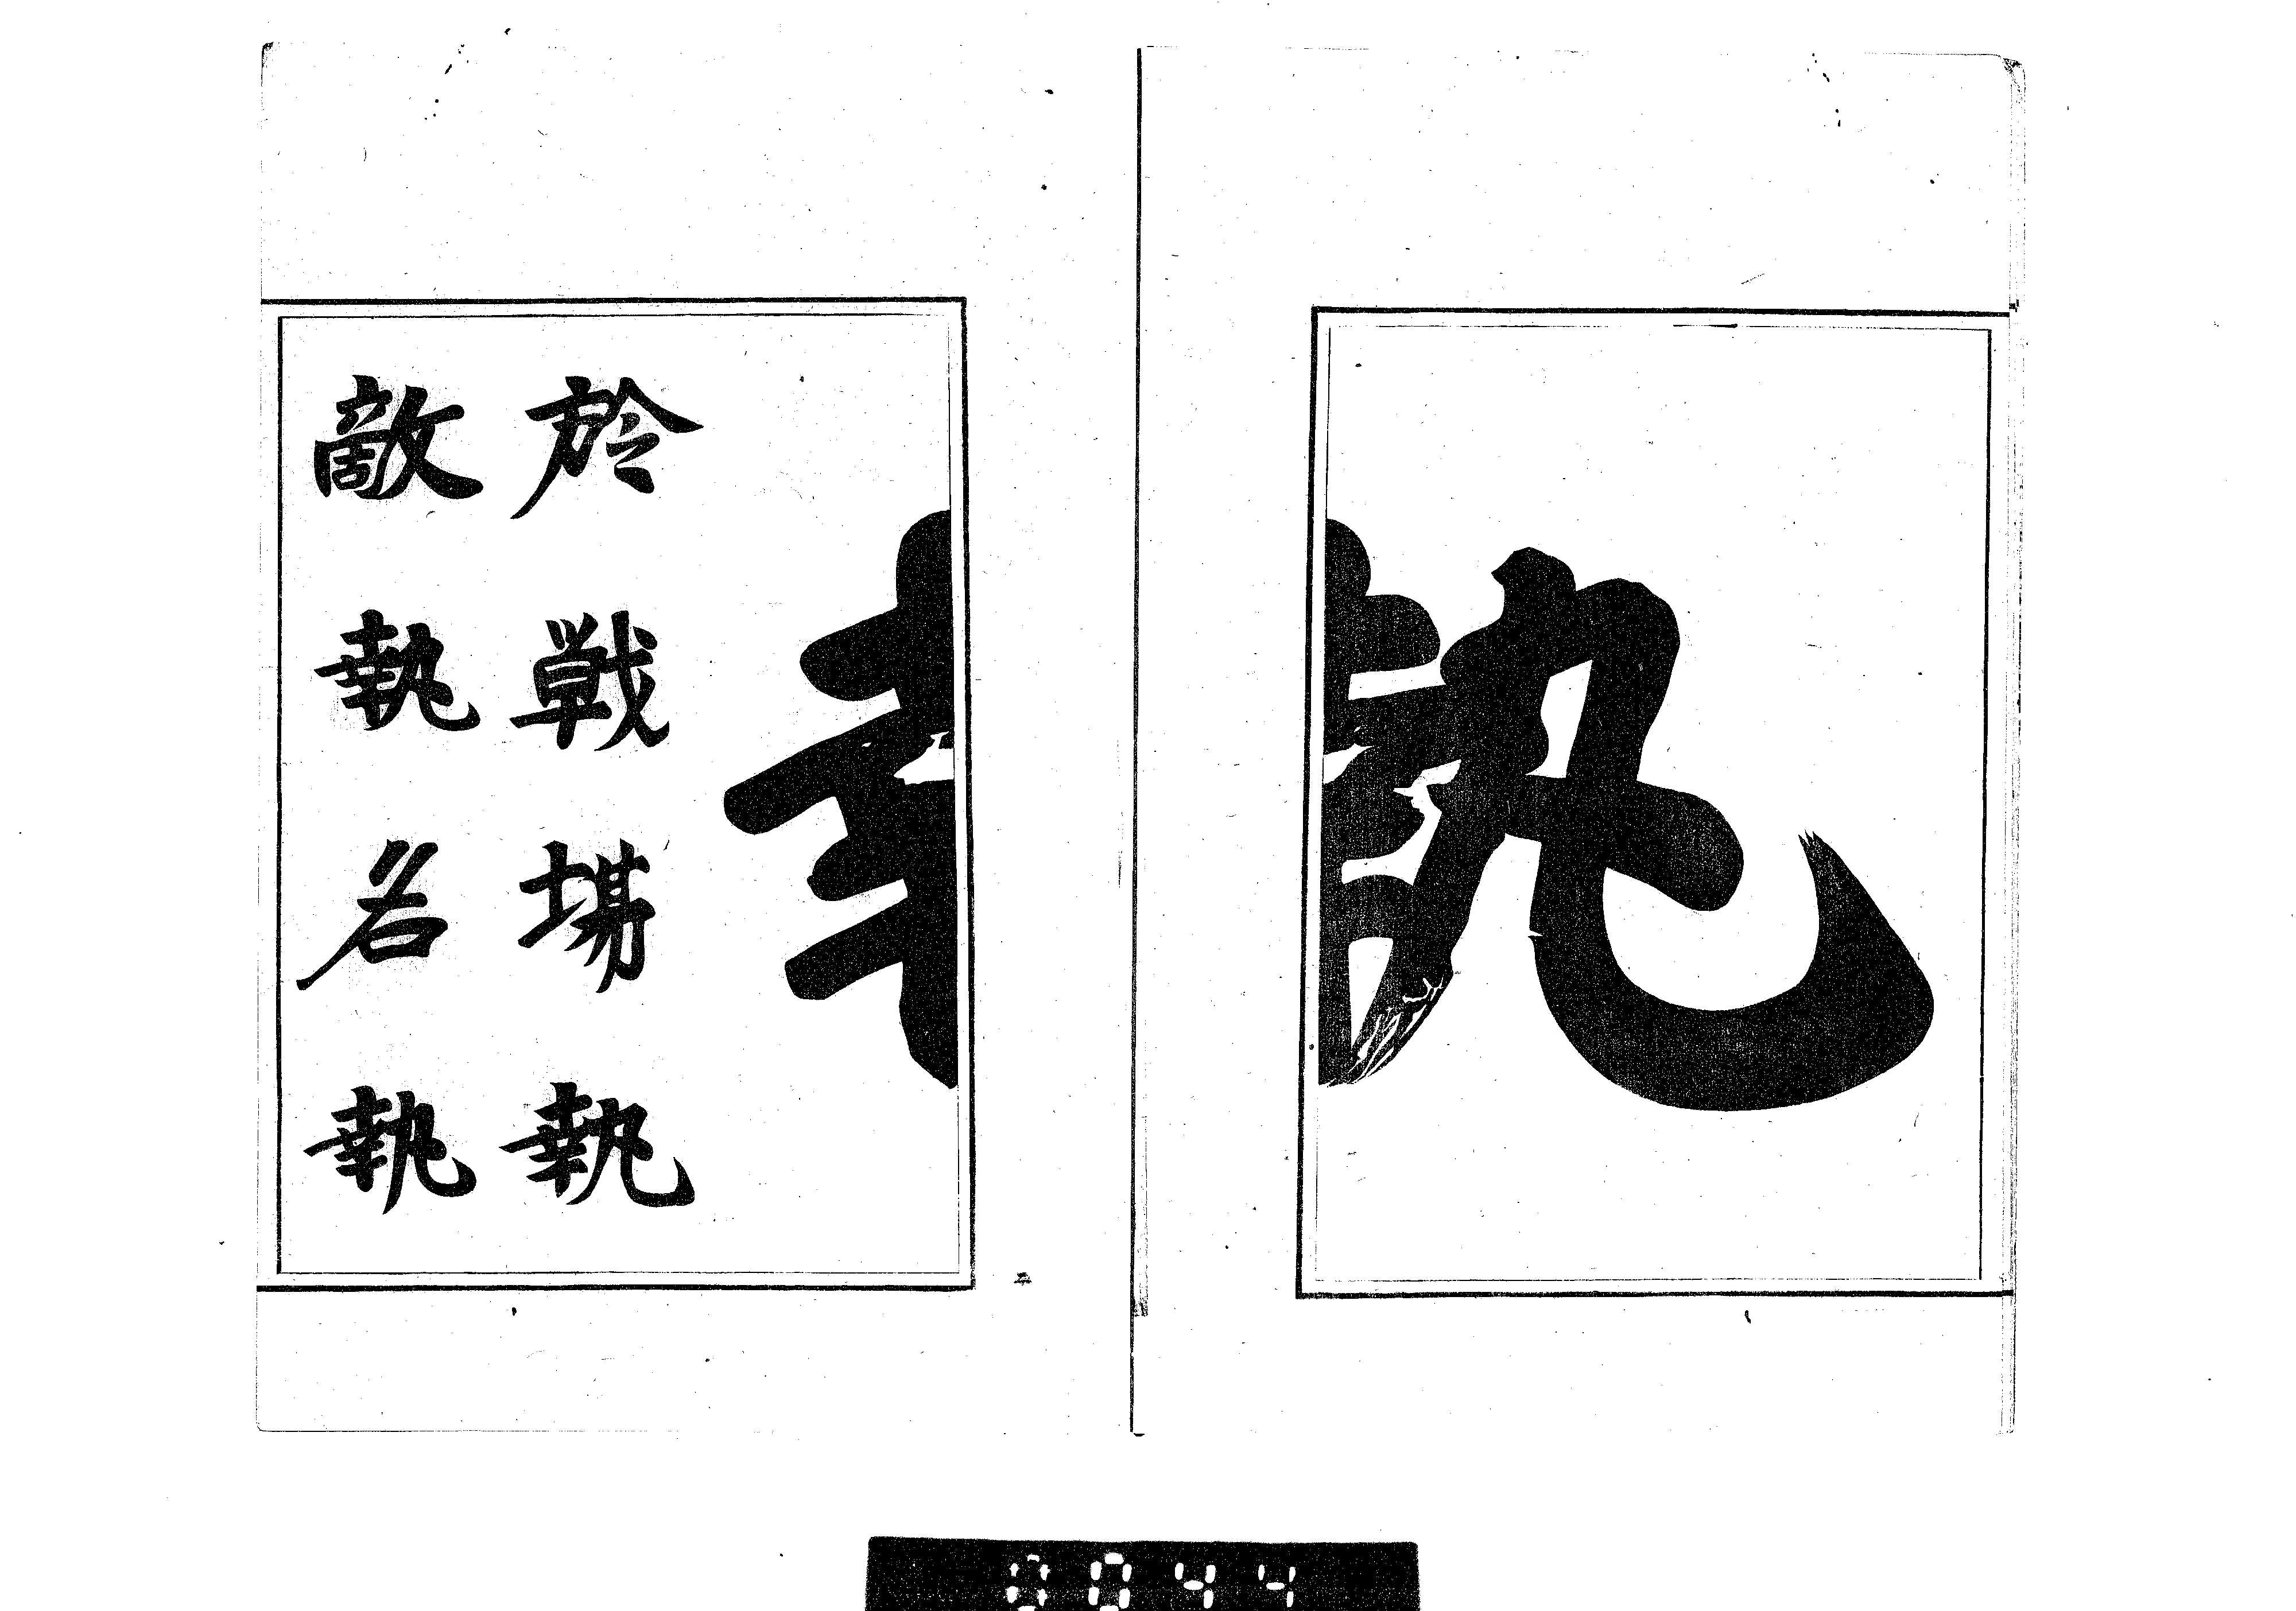 執
於戦場執
敵執名執
0044